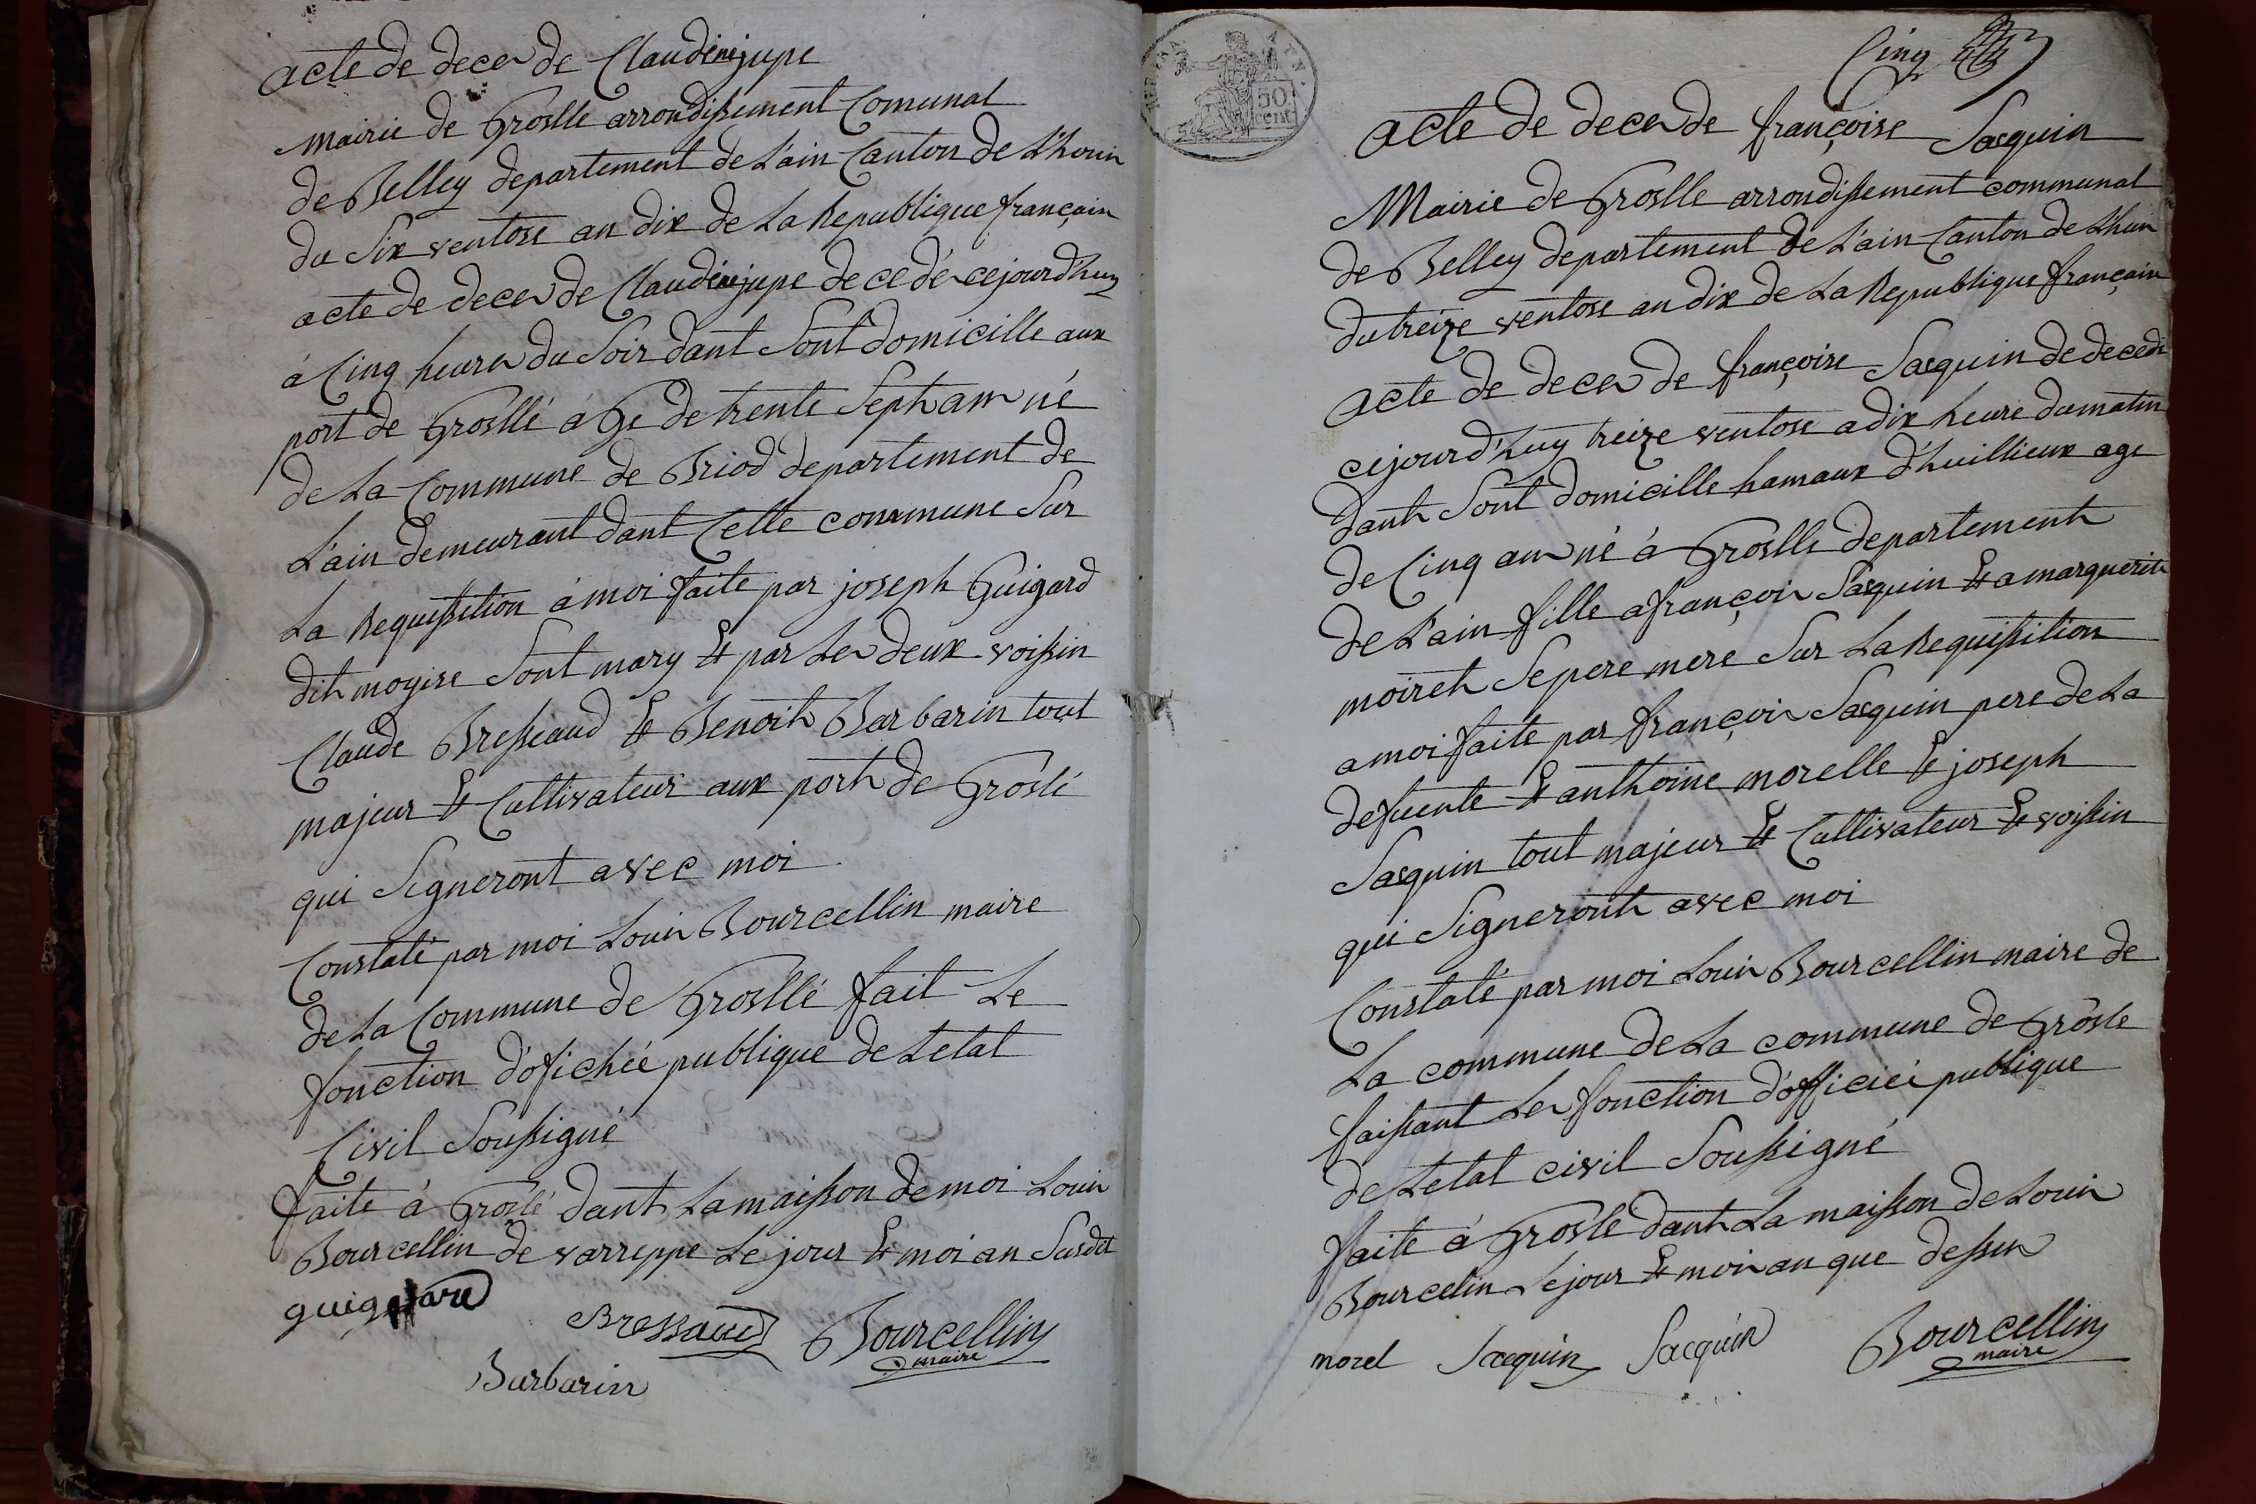 acte de deces de Claudine jupe
Mairie de Groslle arrondissement Comunal
de Belley departement de L'ain Canton de Lhouis
du Six ventose an dix de La Republique français
acte de deces de Claudine jupe decedé cejourd'huy
à Cinq heures du Soir dant Sont domicille aux
port de Grosllé áGe de trente Sept ans né
de La Commune de Briod departement de
L'ain demeurant dant Cette commune Sur
La Requisition à moi faite par joseph Guigard
dit moyire Sont mary Et par Les deux voissin
Claude Bresseaud Et Benoit Barbarin tout
majeur Et Cultivateur aux port de Groslé
qui Signeront avec moi
Constaté par moi Louis Bourcellin maire
de La Commune de Grosllé fait Le
fonction d'ofichée publique de Letat
Civil Soussigné
faite à Groslé dant La maisson de moi Louis
Bourcellin de varreppe Le jour Et moi an Susdit
guigard
Bressaud Bourcellin
maire
Barbarin
REP. FRA
50
cent
Cinq
acte de deces de françoise Jacquin
Mairie de Groslle arrondissement communal
de Belley departement de L'ain Canton de Lhuis
du treize ventose an dix de La Republique français
acte de deces de françoise Jacquin de decedé
cejourd'huy treize ventose a dix heure du matin
dant Sont domicille hamaux d'huillieux age
de Cinq ans né à Groslle departement
de L'ain fille a françois Jacquin Et a marguerite
moiret Se pere mere Sur La Requisition
a moi faite par françois Jacquin pere de La
defuente Et anthoine morelle Et joseph
Jacquin tout majeur Et Cultivateur Et voissin
qui Signeront avec moi
Constaté par moi Louis Bourcellin maire de
La commune de La commune de Grosle
faissant Les fonction d'officiéi publique
de Letat civil Soussigné
faite à Grosle dant La maisson de Louis
Bourcelin Le jour Et mois an que dessus
morel Jacquin Jacquin Bourcellin
maire